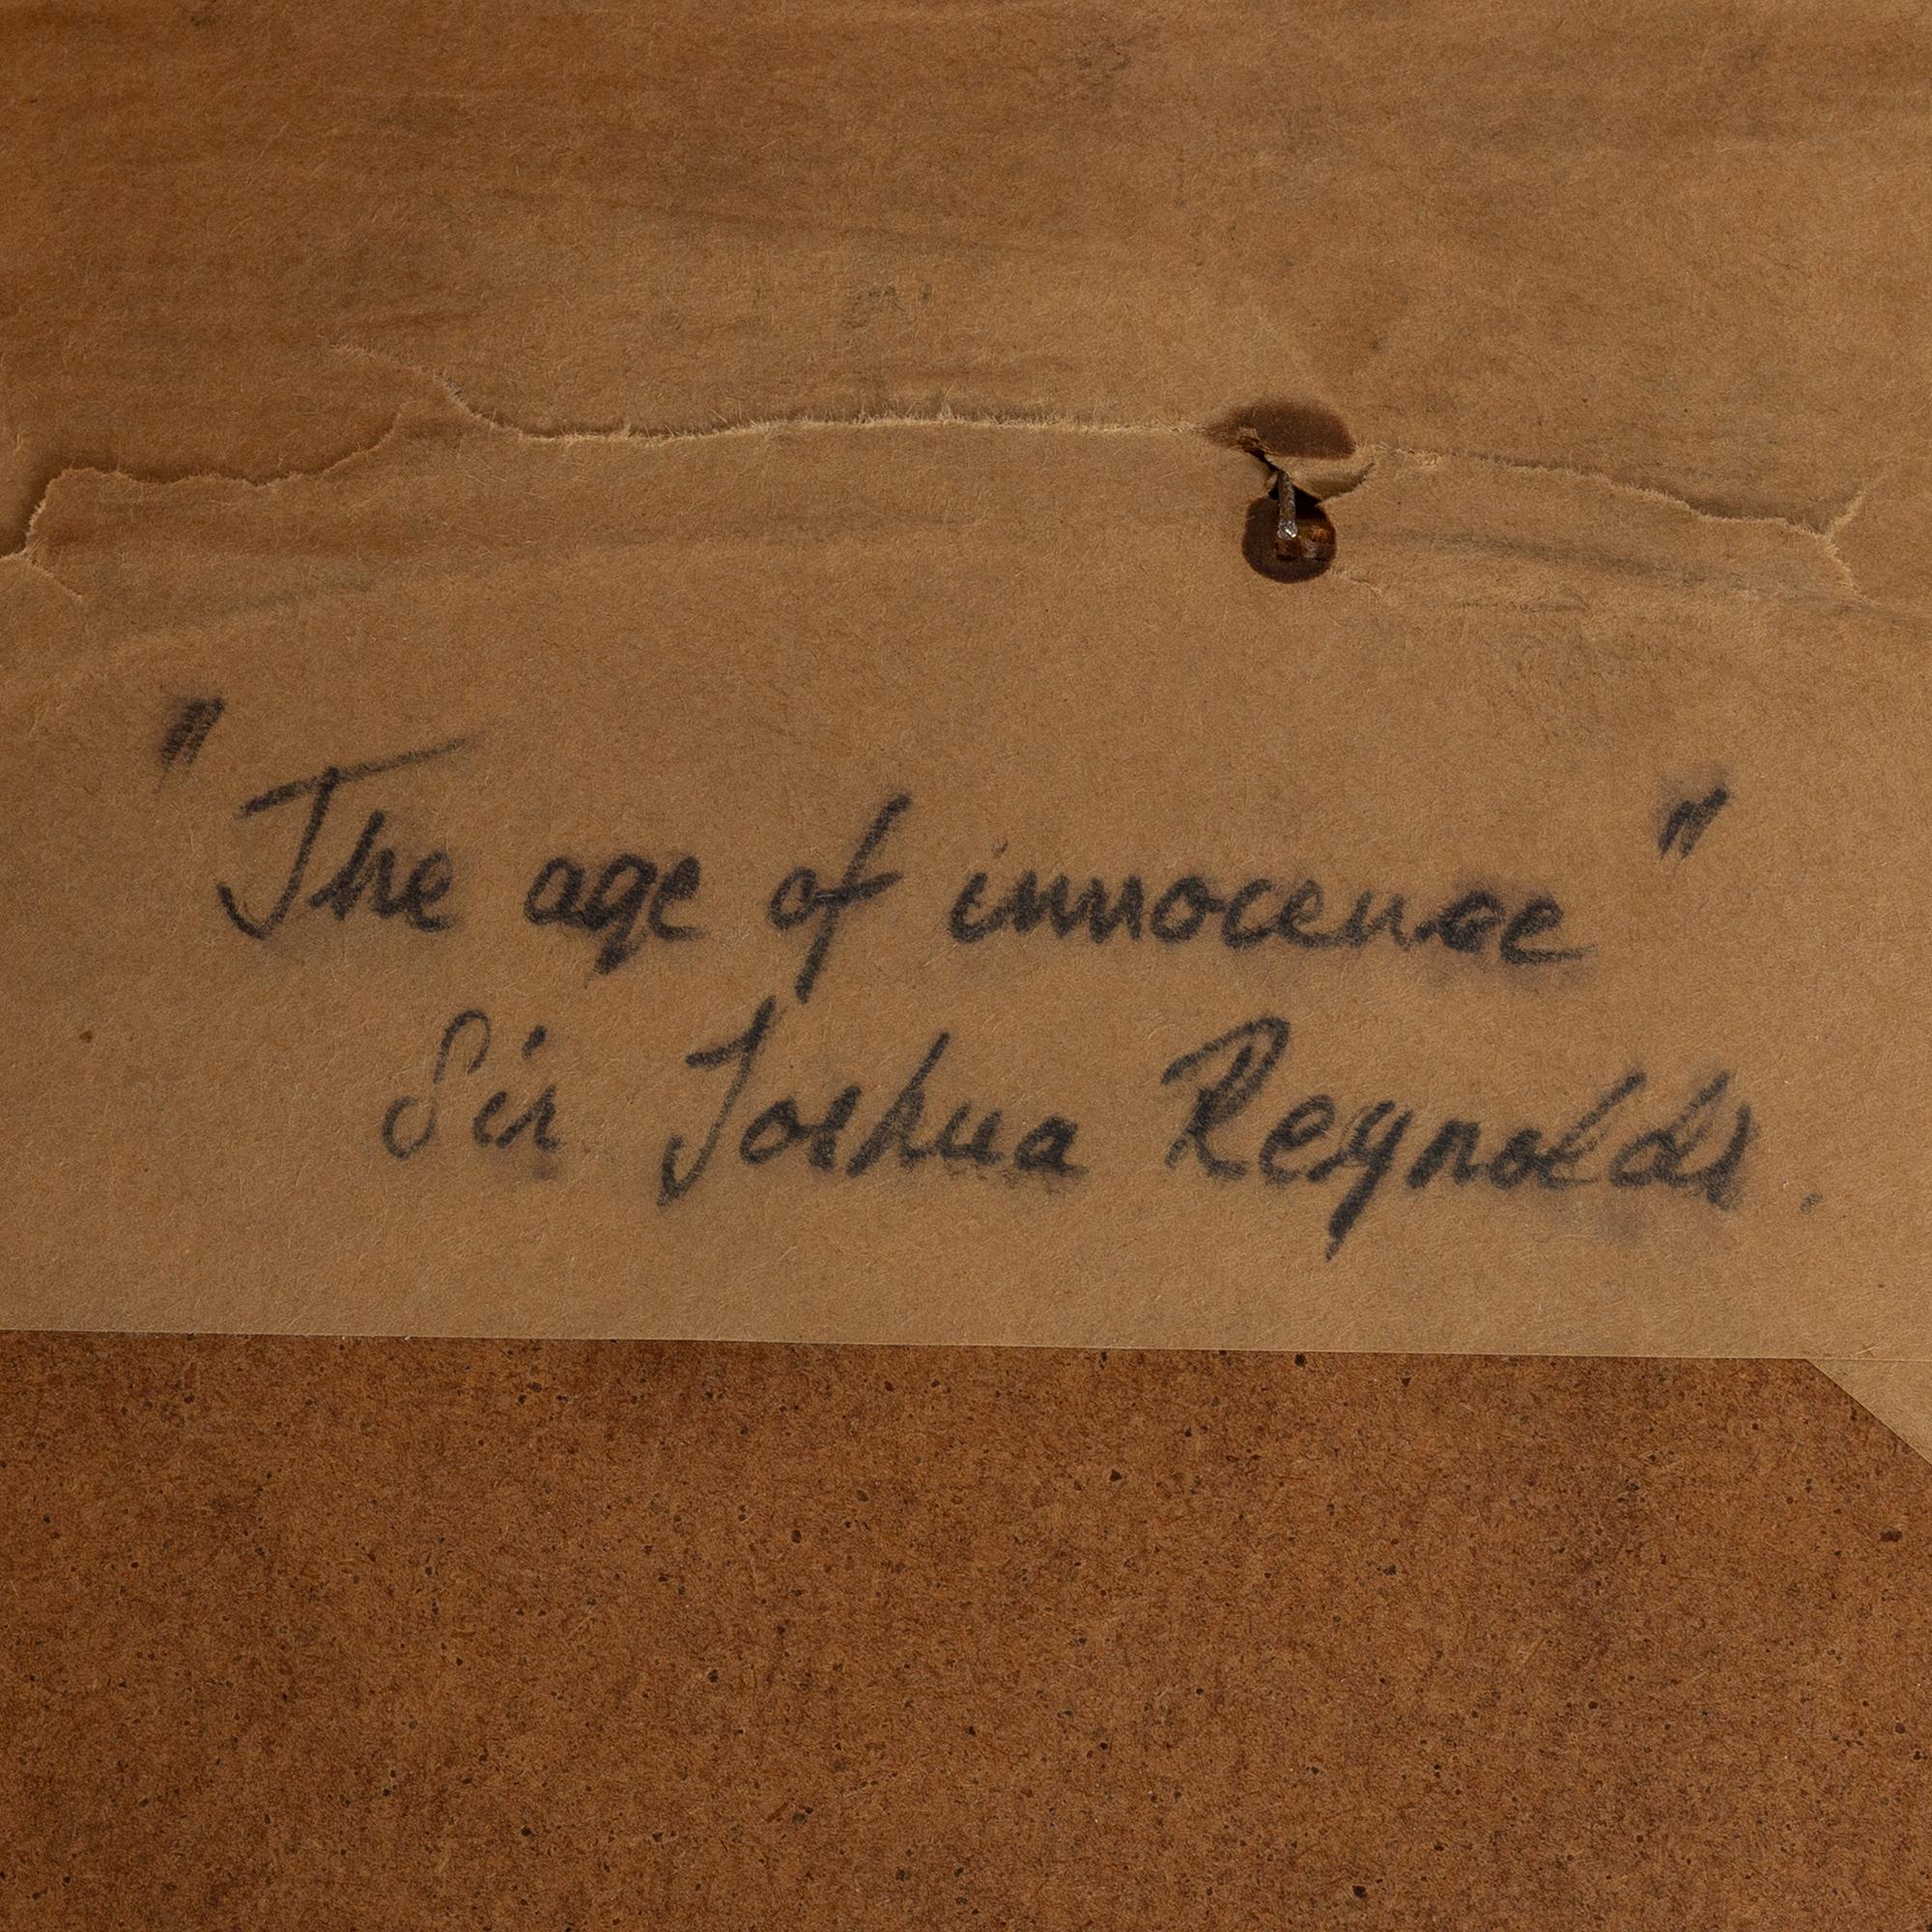 "The age of innocence"
Sir Joshua Reynolds.